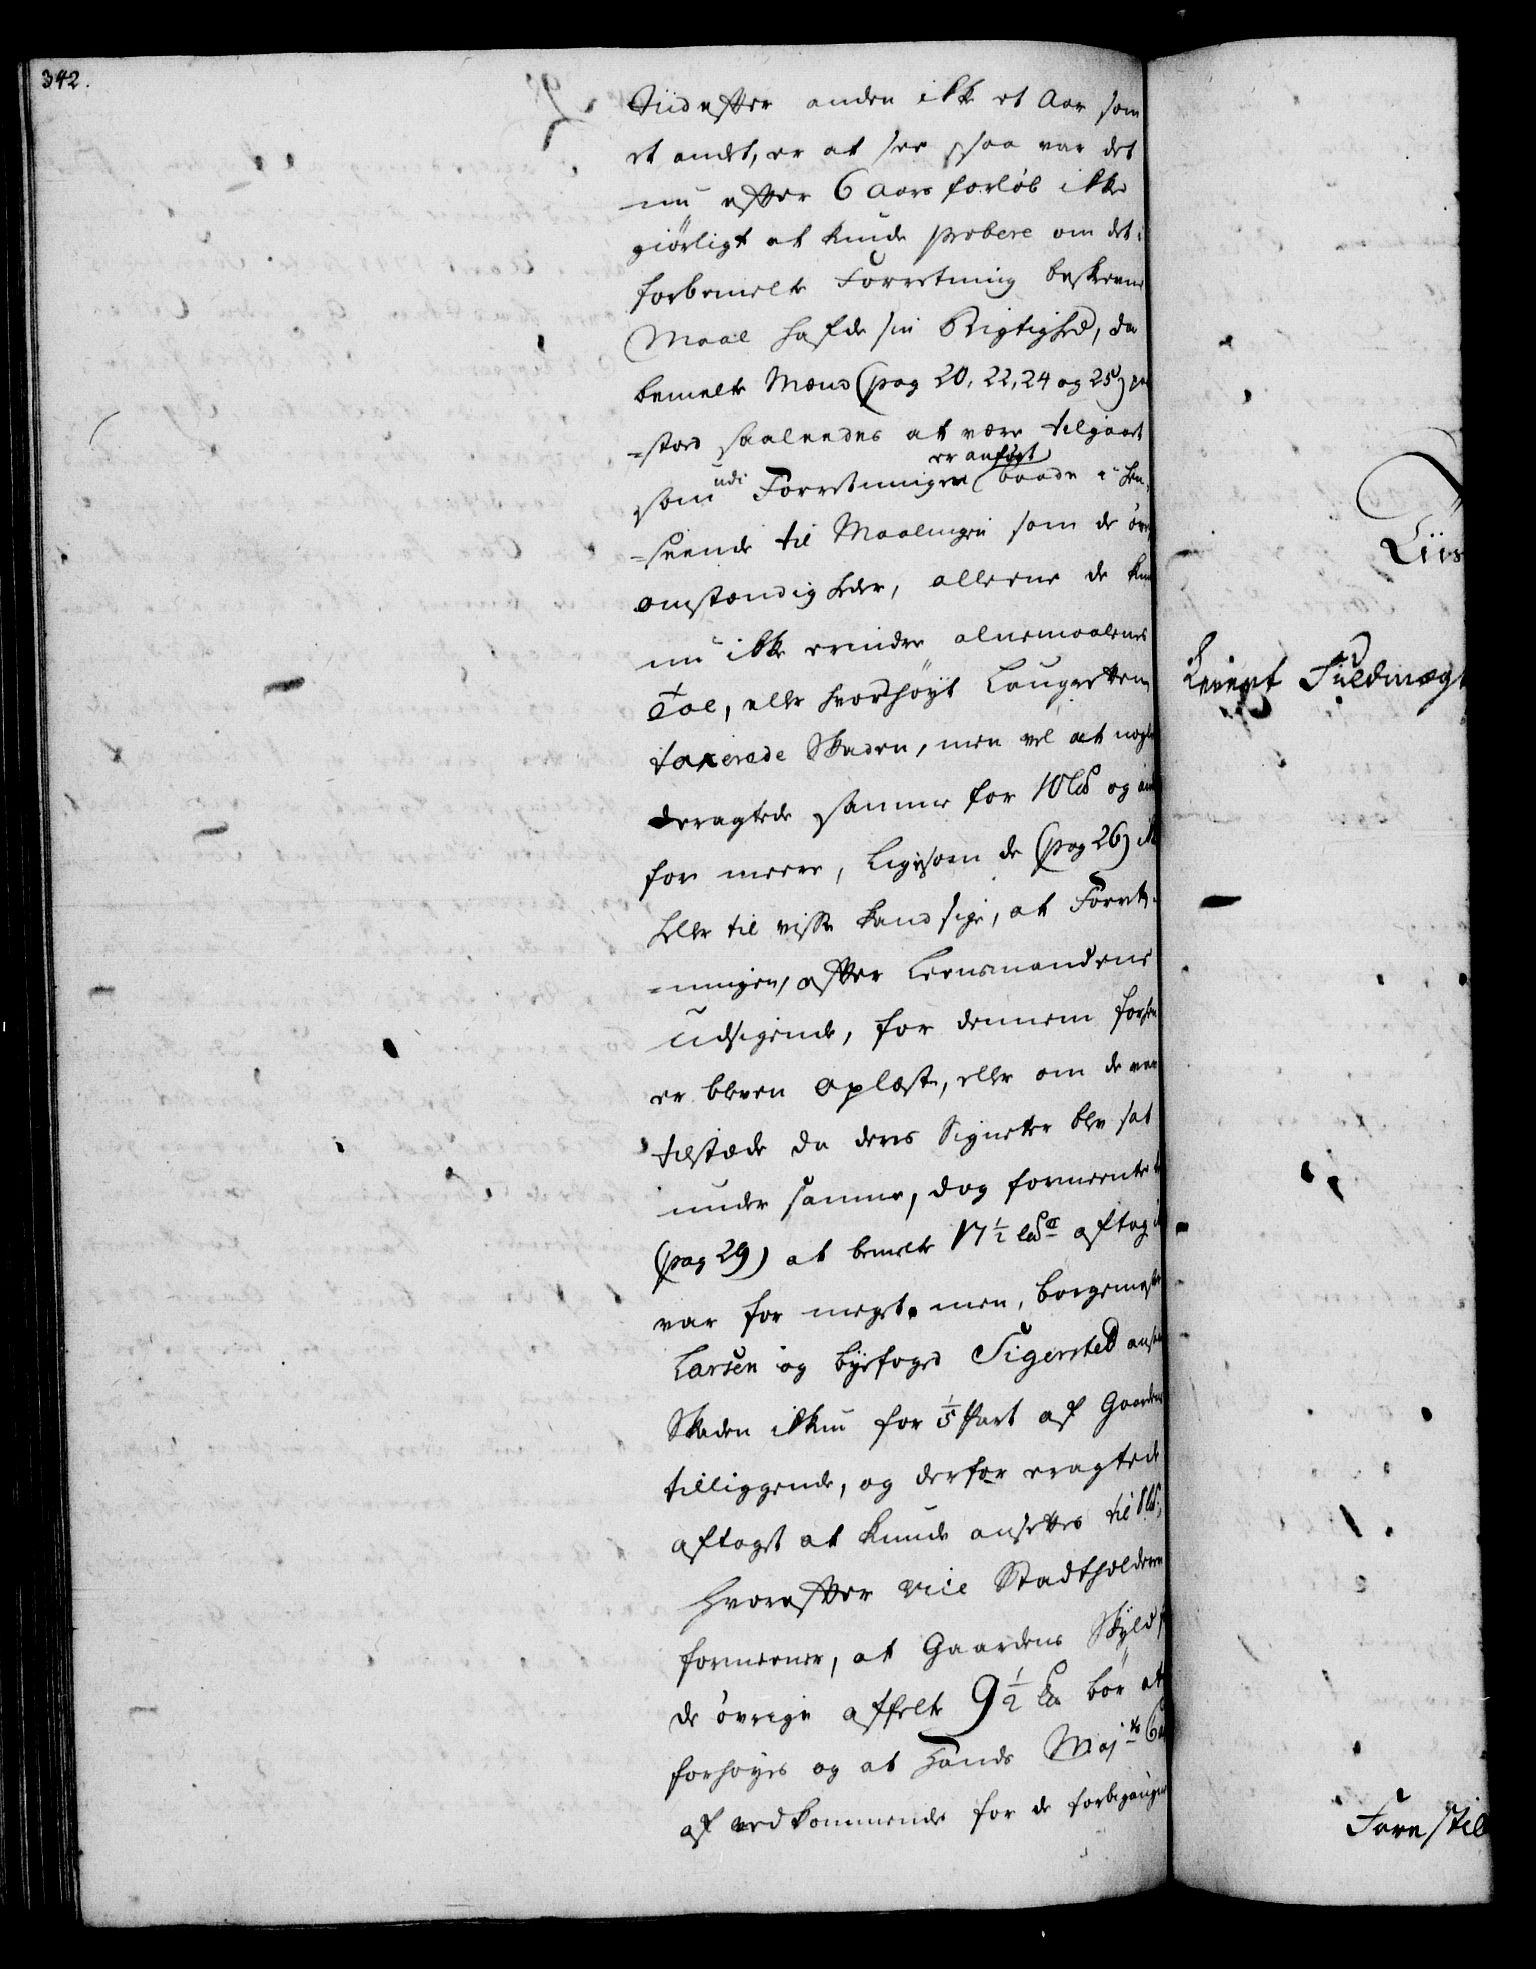 342.
Tiid efter anden ikke et Aar som
et andet, er at see, saa var det
nu efter 6 Aars forløb ikke
giørligt at kunde probere om det i
forbemelte Forretning beskrevne
Maal hafde sin Rigtighed, da
bemelte Mænd (pag 20, 22, 24 og 25)
=stoed saaleedes at være tilgaaet
som udi Forretningen er anført baade i Hen-
=seende til Maalingen som de øvr
omstændigheder, alleene de kun
nu ikke erindre alnemaalenes
Tal, eller hvor høyt Laugretten
taxerede Skaden, men vel at nogle
eragtede samme for 10 lb og an
for meere, ligesom de (pag 26)
heller til visse kand sige, at Forret-
=ningen, efter Leensmandens
Udsigende, for dennem
er bleven oplæst, eller om de var
tilstæde da deres Signetter blev sat
under samme, dog formeente
(pag 29) at bemelte 17½ lb aftag
var for meget. men, borgemester
Larsen og byefoged Sigersted
Skaden ikkun for 1/5 Part af Gaardens
tilliggende, og derfor eragtede
aftaget at kunde ansettes til 8 lb,
hvorefter vice Stadtholderen
formeener, at Gaardens Skyld
de øvrige affelte 9½ lb bør at
forhøyes og at Hands Maj:ts
af vedkommende for de forbigangne
Liis
Fuldmægt
Forestil